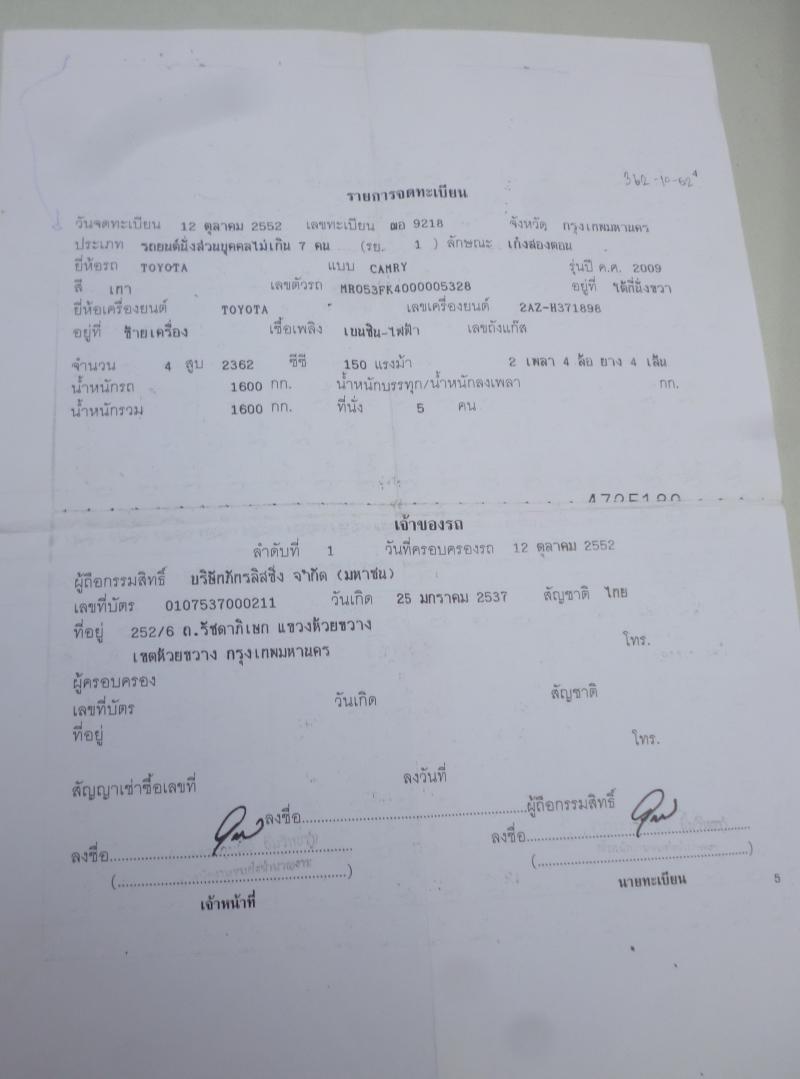 362-10-52
รายการจดทะเบียน
วันจดทะเบียน 12 ตุลาคม 2552 เลขทะเบียน ฌอ 9218 จังหวัด กรุงเทพมหานคร
ประเภท รถยนต์นั่งส่วนบุคคลไม่เกิน 7 คน (รย. 1 ) ลักษณะ เก๋งสองตอน
ยี่ห้อรถ TOYOTA แบบ CAMRY รุ่นปี ค.ศ. 2009
สี เทา เลขตัวรถ MR053FK4000005328 อยู่ที่ ใต้ที่นั่งขวา
ยี่ห้อเครื่องยนต์ TOYOTA เลขเครื่องยนต์ 2AZ-H371898
อยู่ที่ ซ้ายเครื่อง เชื้อเพลิง เบนซิน-ไฟฟ้า เลขถังแก๊ส
จำนวน 4 สูบ 2362 ซีซี 150 แรงม้า 2 เพลา 4 ล้อ ยาง 4 เส้น
น้ำหนักรถ 1600 กก. น้ำหนักบรรทุก/น้ำหนักลงเพลา กก.
น้ำหนักรวม 1600 กก. ที่นั่ง 5 คน
เจ้าของรถ
ลำดับที่ 1 วันที่ครอบครองรถ 12 ตุลาคม 2552
ผู้ถือกรรมสิทธิ์ บริษัทภัทรลิสซิ่ง จำกัด (มหาชน)
เลขที่บัตร 0107537000211 วันเกิด 25 มกราคม 2537 สัญชาติ ไทย
ที่อยู่ 252/6 ถ.รัชดาภิเษก แขวงห้วยขวาง
เขตห้วยขวาง กรุงเทพมหานคร โทร.
ผู้ครอบครอง
เลขที่บัตร วันเกิด สัญชาติ
ที่อยู่ โทร.
สัญญาเช่าซื้อเลขที่ ลงวันที่
ลงชื่อ..................................ผู้ถือกรรมสิทธิ์
ลงชื่อ.................................. ลงชื่อ..................................
(..................................) (..................................)
เจ้าหน้าที่ นายทะเบียน 5